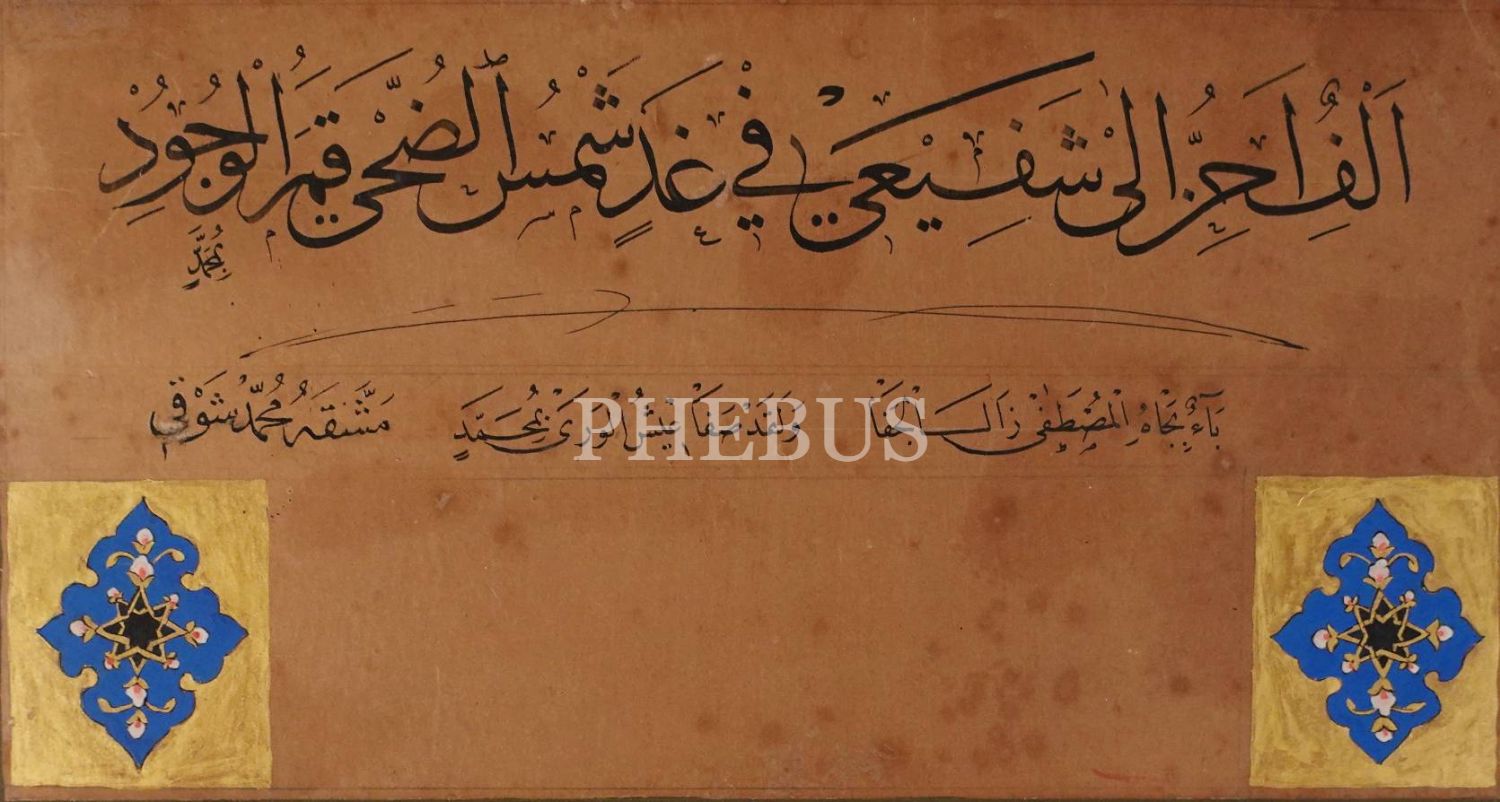 اَلِفٌ اَحِنُّ اِلٰى شَفِيْعِي فِي غَدٍ شَمْسُ الضُّحٰى قَمَرُ الْوُجُودِ
بِمُحَمَّدٍ
بَاءٌ بِجَاهِ الْمُصْطَفٰى زَالَ الْجَفَا وَلَقَدْ صَفَا عَيْشُ الْوَرَى بِمُحَمَّدٍ مَشَّقَهُ مُحَمَّد شَوْقِي
PHEBUS